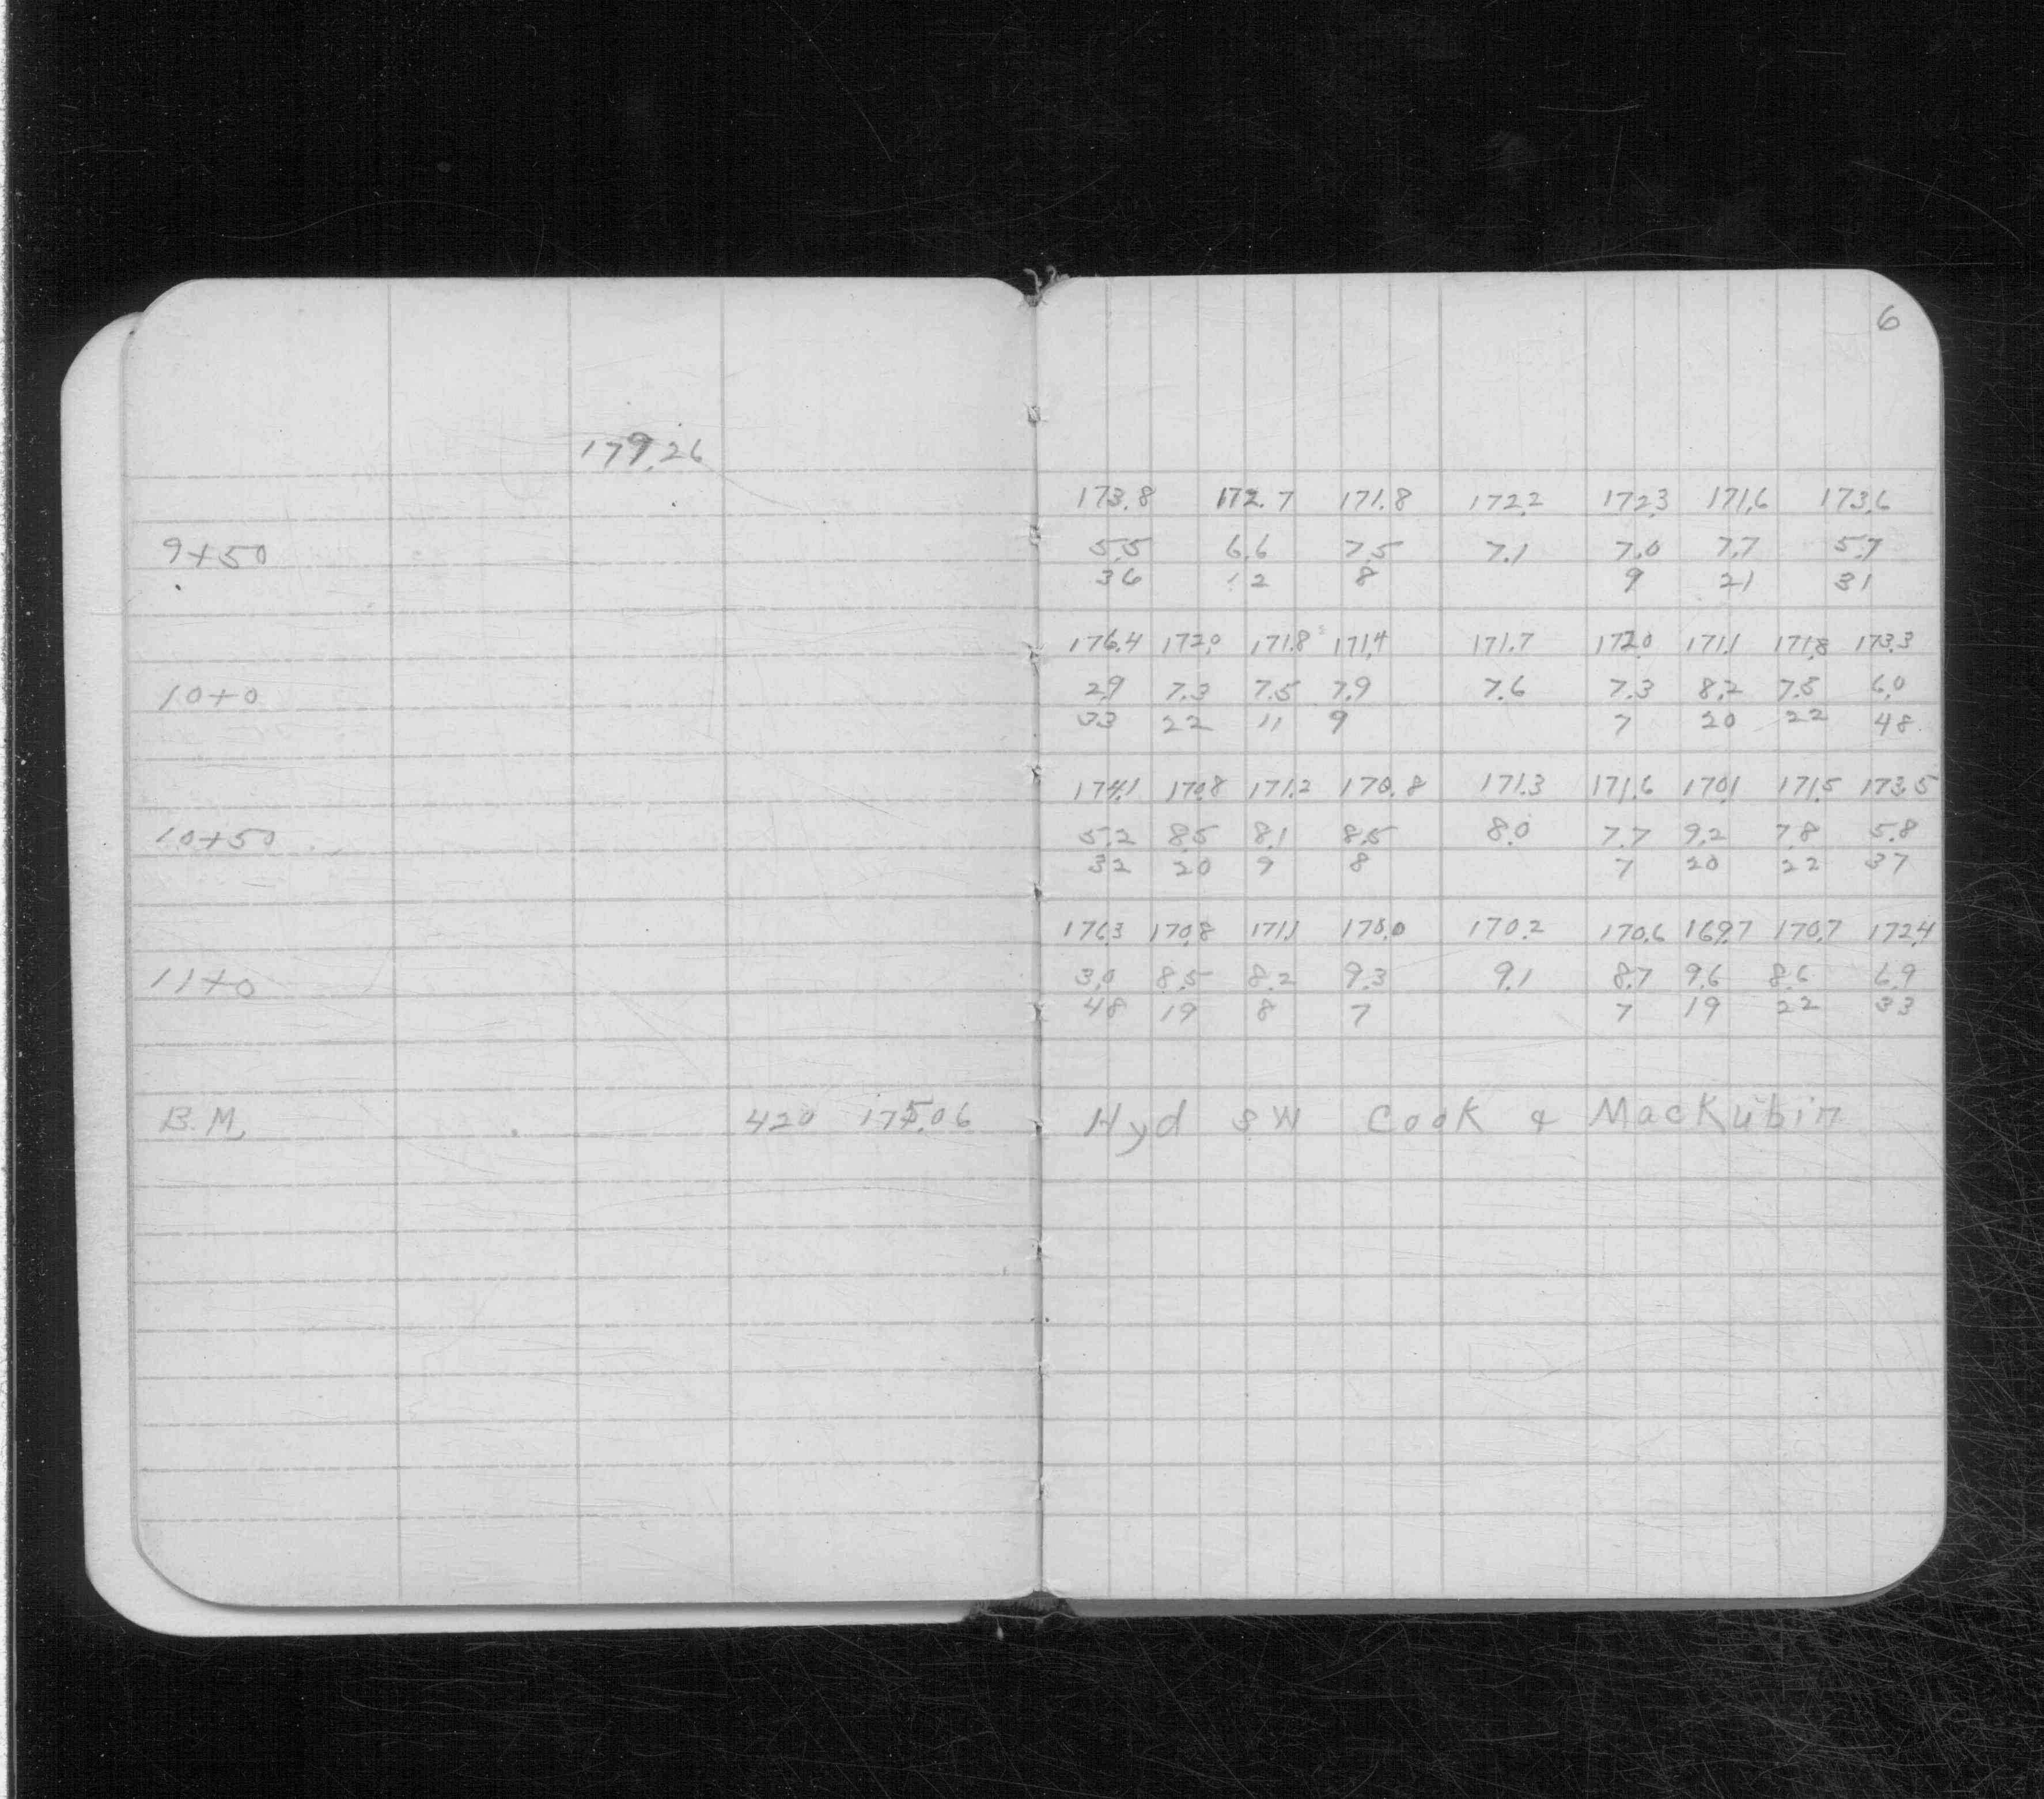 6
179.26
173.8 172.7 171.8 172.2 172.3 171.6 173.6
9+50 5.5 6.6 7.5 7.1 7.0 7.7 5.7
36 12 8 9 21 31
176.4 172.0 171.8 171.4 171.7 172.0 171.1 171.8 173.3
10+0 2.9 7.3 7.5 7.9 7.6 7.3 8.2 7.5 6.0
33 22 11 9 7 20 22 48
174.1 170.8 171.2 170.8 171.3 171.6 170.1 171.5 173.5
10+50 5.2 8.5 8.1 8.5 8.0 7.7 9.2 7.8 5.8
32 20 9 8 7 20 22 37
176.3 170.8 171.1 170.0 170.2 170.6 169.7 170.7 172.4
11+0 3.0 8.5 8.2 9.3 9.1 8.7 9.6 8.6 6.9
48 19 8 7 7 19 22 33
B.M. 420 175.06 Hyd SW Cook & Mackubin